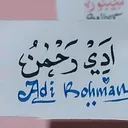 اَدِيْ رَحْمٰنُ
Adi Rohman